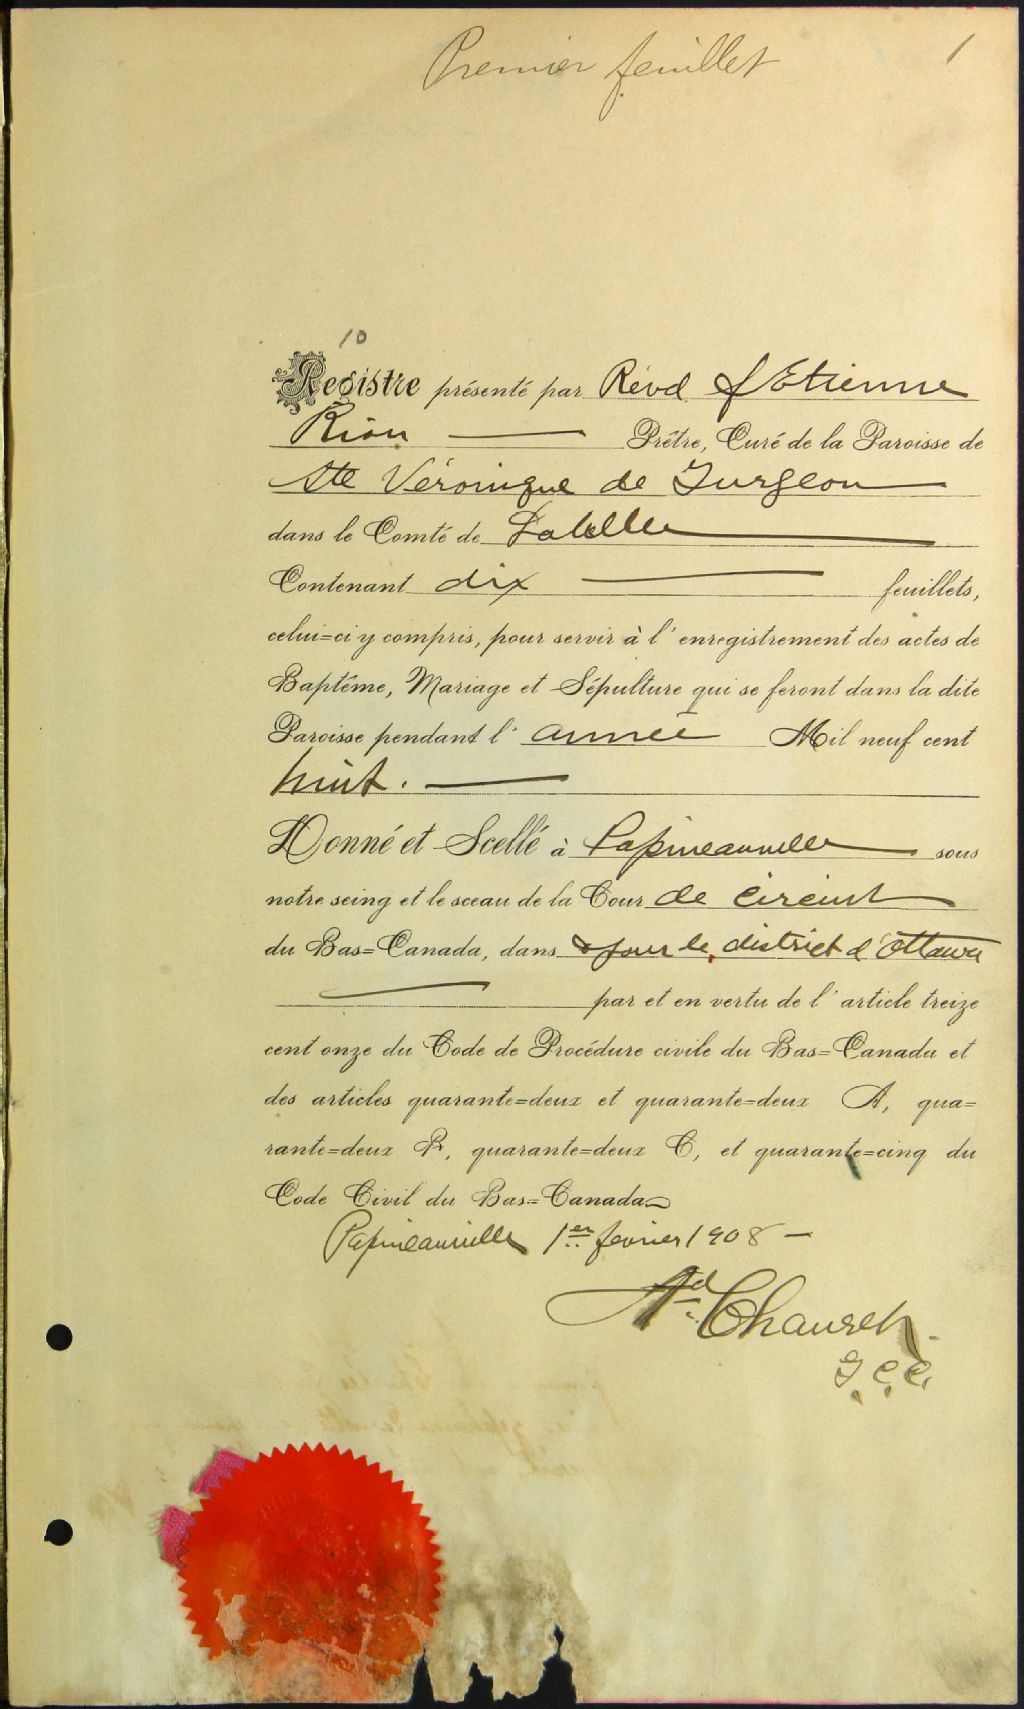 Premier feuillet 1
10
Registre présenté par Révd J Etienne
Riou Prêtre, Curé de la Paroisse de
Ste Véronique de Turgeon
dans le Comté de Labelle
Contenant dix feuillets,
celui=ci y compris, pour servir à l'enregistrement des actes de
Baptême, Mariage et Sépulture qui se feront dans la dite
Paroisse pendant l'année Mil neuf cent
huit.
Donné et Scellé à Papineauville sous
notre seing et le sceau de la Cour de circuit
du Bas=Canada, dans & pour le district d'Ottawa
par et en vertu de l'article treize
cent onze du Code de Procédure civile du Bas=Canada et
des articles quarante=deux et quarante=deux A, qua=
rante=deux B, quarante=deux C, et quarante=cinq du
Code Civil du Bas=Canada
Papineauville 1er fevrier 1908 —
Ad
G.C.C.